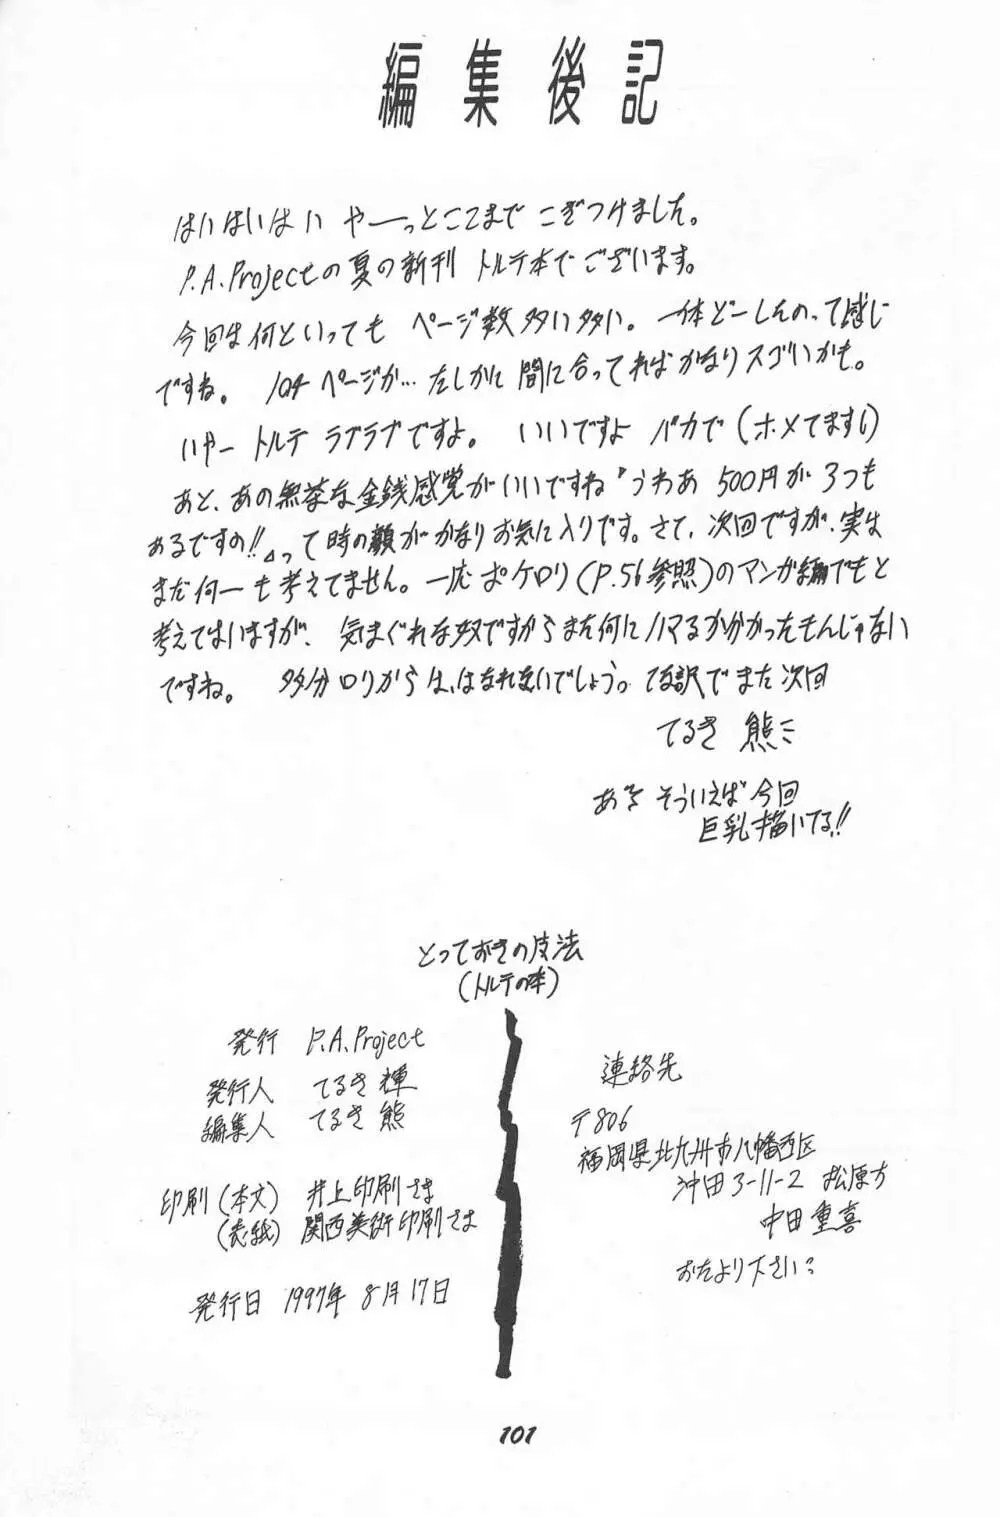 編集後記
はいはいはい やーーっとここまで こぎつけました。
P.A.Projectの夏の新刊 トルテ本でございます。
今回は何といっても ページ数多い多い。一体どーしたのって感じ
ですね。 104ページか… たしかに 間に合ってればかなりスゴいかも。
いやー トルテ ラブラブですよ。 いいですよ バカで(ホメてます!)
あと、あの無茶な金銭感覚がいいですね『うわあ 500円が3つも
あるですの!!』って時の顔がかなりお気に入りです。さて、次回ですが、実は
まだ何ーも考えてません。一応ポケロリ(P.56参照)のマンガ編でもと
考えてはいますが、 気まぐれな奴ですからまた何にハマるか分かったもんじゃない
ですね。 多分ロリからは、はなれないでしょうっ て訳でまた次回
てるき 熊ミ
あ、そういえば 今回
巨乳描いてる!!
とっておきの技法
(トルテの本)
発行 P.A.Project
発行人 てるき 輝
編集人 てるき 熊
印刷(本文) 井上印刷さま
(表紙) 関西美術印刷さま
発行日 1997年 8月17日
連絡先
〒806
福岡県北九州市八幡西区
沖田3-11-2 松原方
中田 重喜
おたより下さい?
101